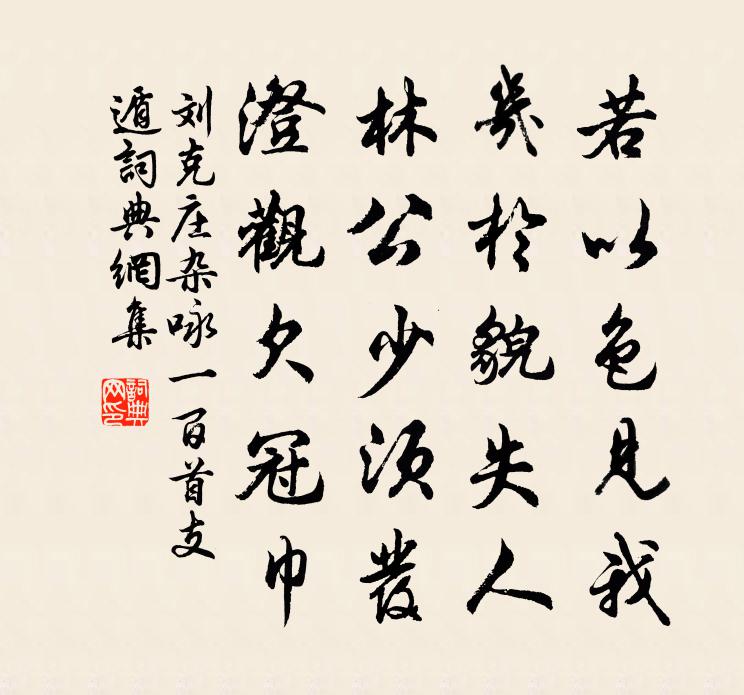 若以色見我
幾於貌失人
林公少須發
澄觀欠冠巾
刘克庄杂咏一百首支
遁詞典網集
詞典
网印